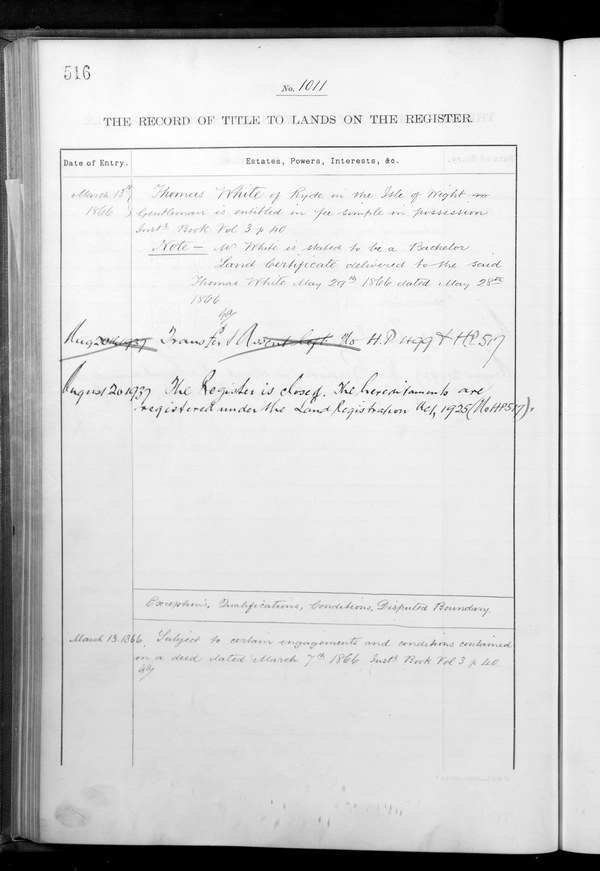 516
No. 1011
THE RECORD OF TITLE TO LANDS ON THE REGISTER.
Date of Entry.
Estates, Powers, Interests, &c.
March 13th 1866
Thomas White of Ryde in the Isle of Wight
Gentleman is entitled in fee simple in possession
Instt Book Vol 3 p 40
Note — Mr White is stated to be a Bachelor
Land Certificate delivered to the said
Thomas White May 29th 1866 dated May 28th
1866
Aug 20th 1937 Transfd No H.P. 499 & HP 517
August 20 1937 The Register is closed. The hereditaments are
registered under the Land Registration Act, 1925 (No HP517).
Exceptions, Qualifications, Conditions, Disputed Boundary.
March 13. 1866. Subject to certain engagements and conditions contained
in a deed dated March 7th 1866 Instt Book Vol 3 p 40